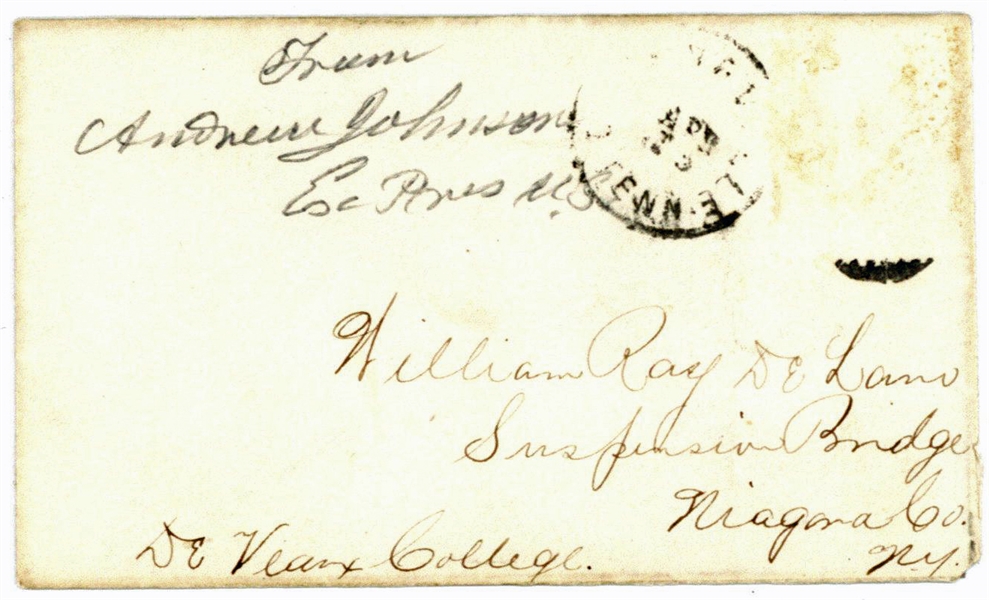 From
Andrew Johnson
Ex Pres U.S.
APR
TENN.
William Ray DE Lano
Suspension Bridge
Niagara Co.
N.Y.
DE Veaux College.